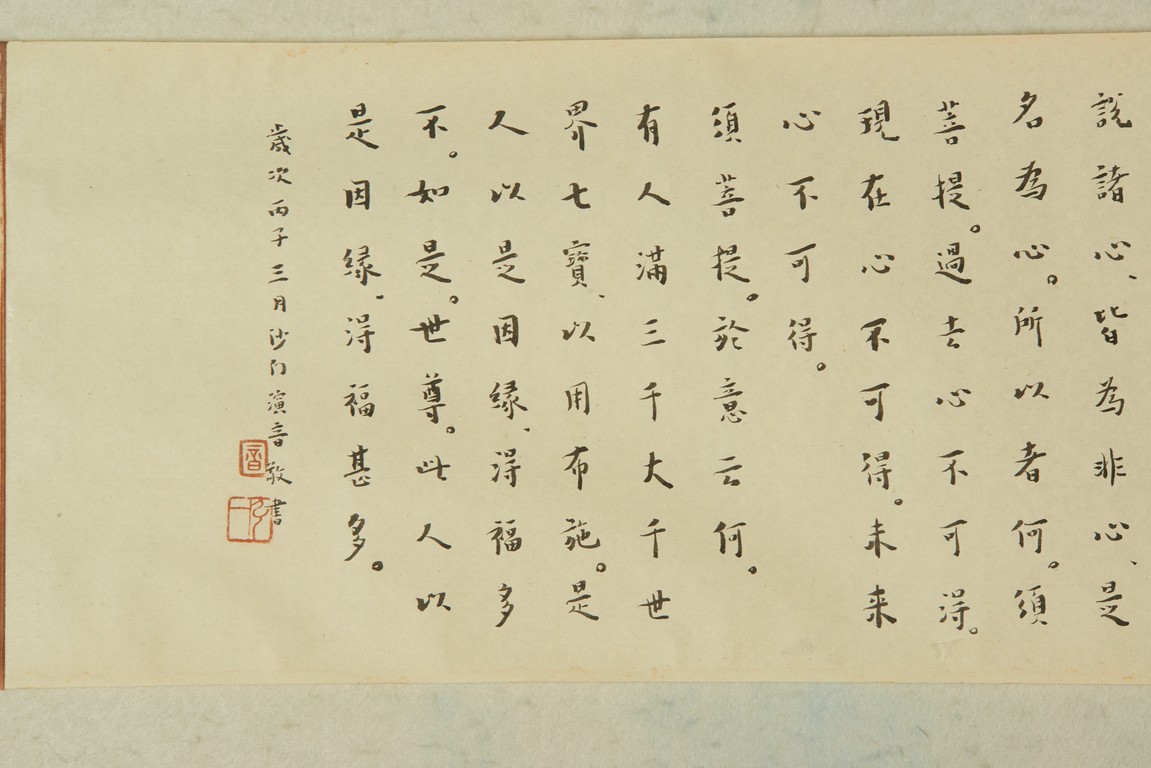 說諸心、皆為非心、是
名為心。所以者何。須
菩提。過去心不可得。
現在心不可得。未來
心不可得。
須菩提。於意云何。
有人滿三千大千世
界七寶、以用布施。是
人以是因緣、得福多
不。如是。世尊。此人以
是因緣、得福甚多。
歲次丙子三月沙门演音敬書
音